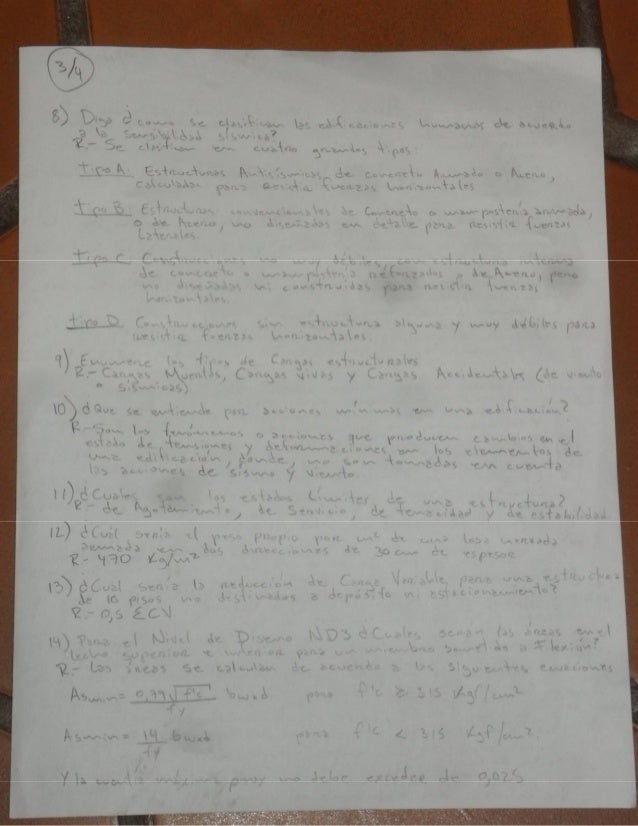 3/4
8) Diga ¿como se clasifican las edificaciones humanas de acuerdo
a la sensibilidad sísmica?
R- Se clasifican en cuatro grandes tipos:
Tipo A. Estructuras Antisísmicas de concreto Armado o Acero,
calculadas para resistir fuerzas horizontales
Tipo B. Estructuras convencionales de Concreto o mampostería armada,
o de Acero, no diseñadas en detalle para resistir fuerzas
Laterales.
Tipo C. Construcciones no muy débiles, con estructura interna
de concreto o mampostería reforzados o de Acero, pero
no diseñadas ni construidas para resistir fuerzas
horizontales.
Tipo D. Construcciones sin estructura alguna y muy débiles para
resistir fuerzas horizontales.
9) Enumere los tipos de Cargas estructurales
R- Cargas Muertas, Cargas vivas y Cargas Accidentales (de viento
o sísmicas)
10) ¿Que se entiende por acciones mínimas en una edificación?
R- Son los fenómenos o acciones que producen cambios en el
estado de tensiones y deformaciones en los elementos de
una edificación, donde, no son tomadas en cuenta
las acciones de sismo y viento.
11) ¿Cuales son los estados Límites de una estructura?
R- de Agotamiento, de Servicio, de tenacidad y de estabilidad
12) ¿Cuál sería el peso propio por m² de una losa nervada
armada en dos direcciones de 30 cm de espesor
R- 470 Kg/m²
13) ¿Cuál sería la reducción de Carga Variable, para una estructura
de 10 pisos no destinados a depósito ni estacionamiento?
R- 0,5 ΣCV
14) Para el Nivel de Diseno ND3 ¿Cuales serán las áreas en el
lecho superior e inferior para un miembro sometido a Flexión?
R- Las áreas se calculan de acuerdo a las siguientes ecuaciones
Asmin = 0,79√f'c / fy bwxd para f'c ≥ 315 Kgf/cm²
Asmin = 14 / fy bwxd para f'c < 315 Kgf/cm²
Y la cuantía máxima no debe exceder de 0,025